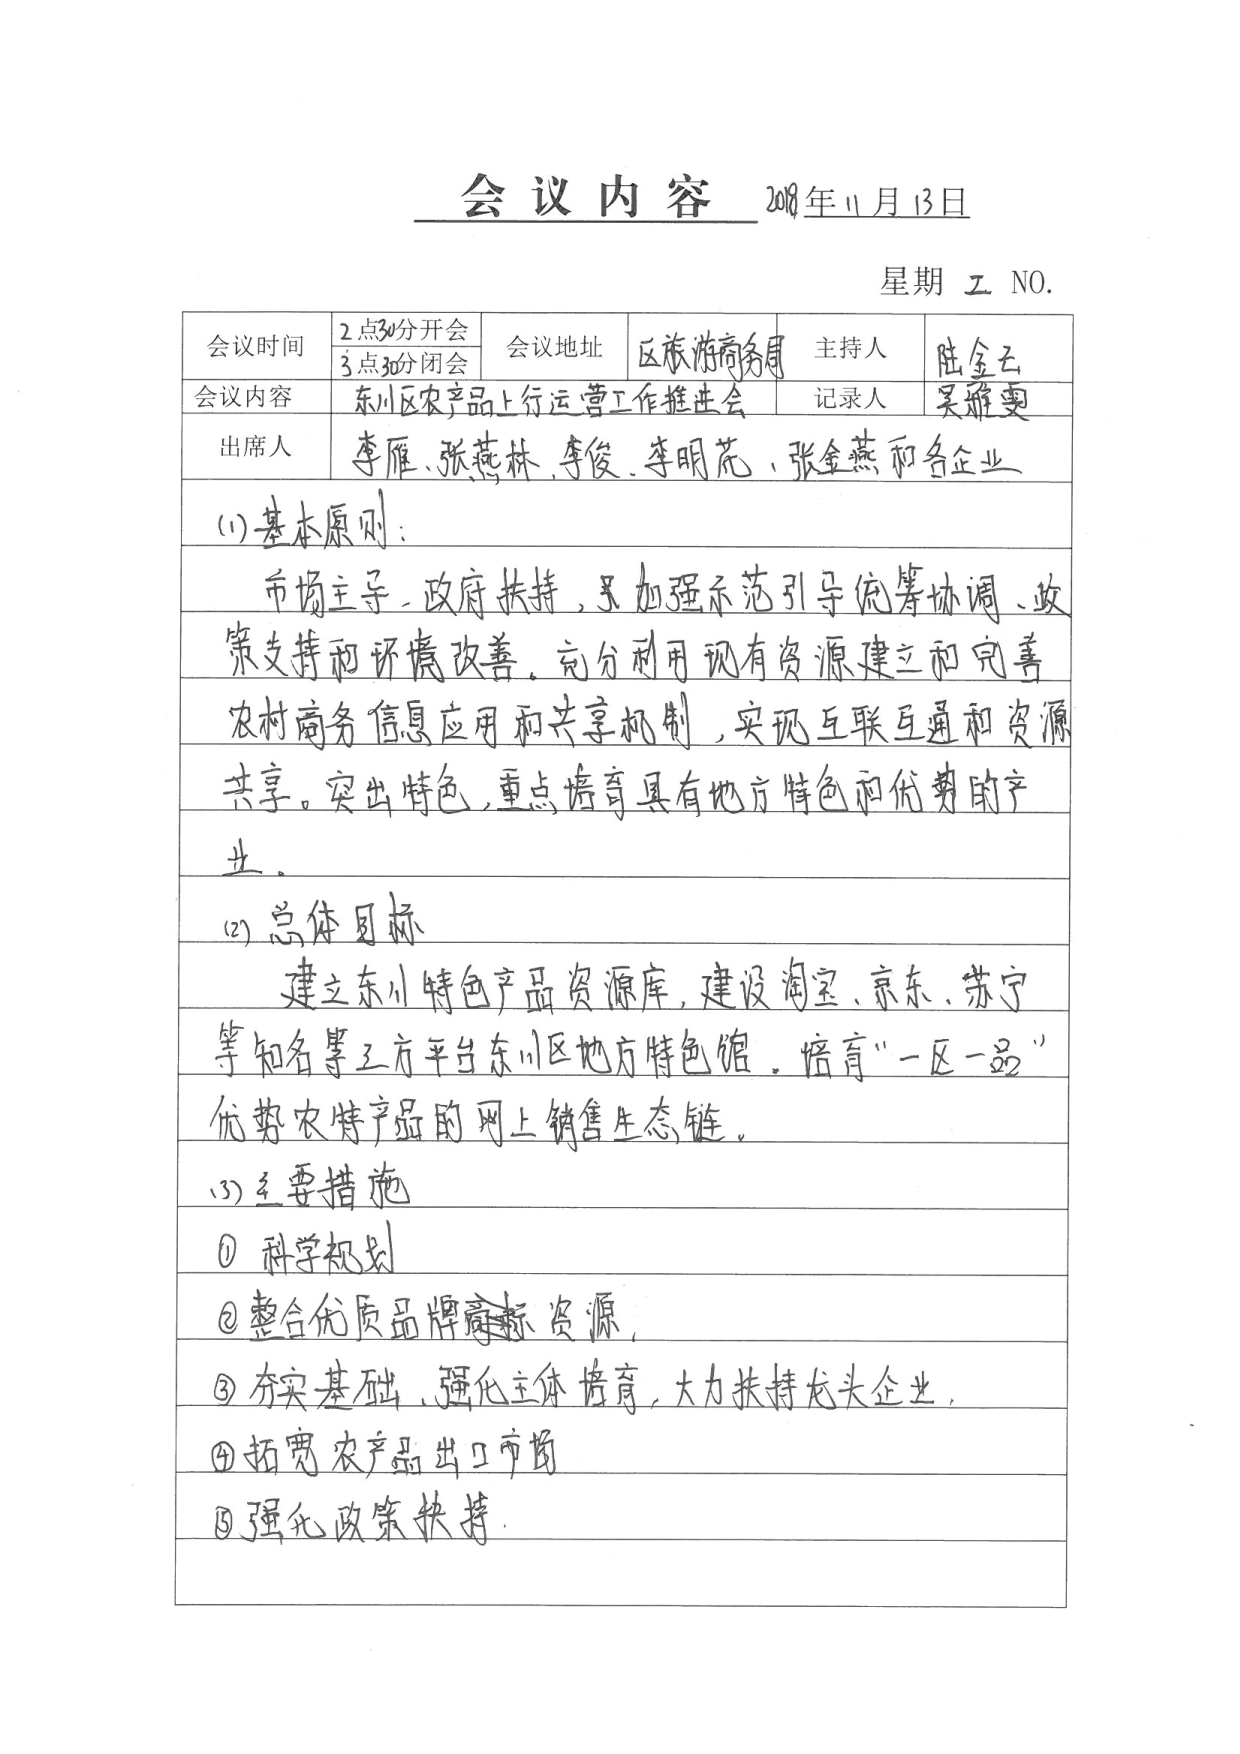 会议内容 2018年11月13日
星期 二 NO.
会议时间 2点30分开会 会议地址 区旅游商务局 主持人 陆金云
3点30分闭会
会议内容 东川区农产品上行运营工作推进会 记录人 吴雅雯
出席人 李雁、张燕林、李俊、李明芫、张金燕和各企业
(1)基本原则:
市场主导、政府扶持,加强示范引导统筹协调、政
策支持和环境改善。充分利用现有资源建立和完善
农村商务信息应用和共享机制,实现互联互通和资源
共享。突出特色,重点培育具有地方特色和优势的产
业。
(2)总体目标
建立东川特色产品资源库,建设淘宝、京东、苏宁
等知名第三方平台东川区地方特色馆。培育“一区一品”
优势农特产品的网上销售生态链。
(3)主要措施
① 科学规划
②整合优质品牌商标资源,
③夯实基础、强化主体培育,大力扶持龙头企业,
④拓宽农产品出口市场
⑤强化政策扶持.